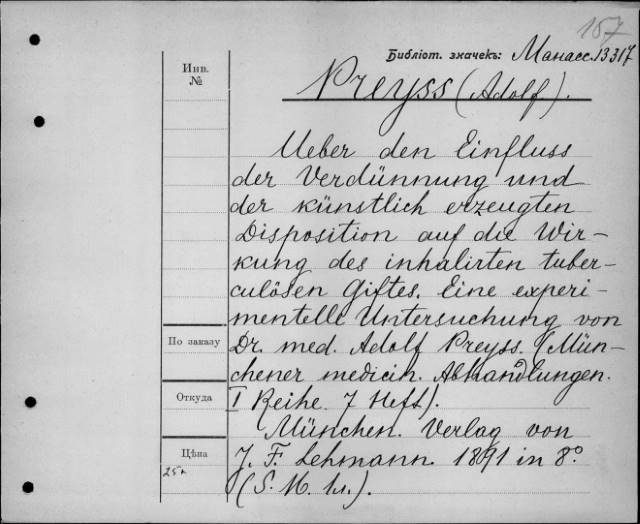 157
Библіот. значекъ: Манасс. 13317
Инв.
№
Preyss (Adolf).
Ueber den Einfluss
der Verdünnung und
der künstlich erzeugten
Disposition auf die Wir-
kung des inhalirten tuber-
culösen Giftes. Eine experi-
mentelle Untersuchung von
По заказу
Dr. med. Adolf Preyss. (Mün-
chener medicin. Abhandlungen.
Откуда
I Reihe. 7 Heft).
München. Verlag von
Цѣна
J. F. Lehmann. 1891 in 8°
25к